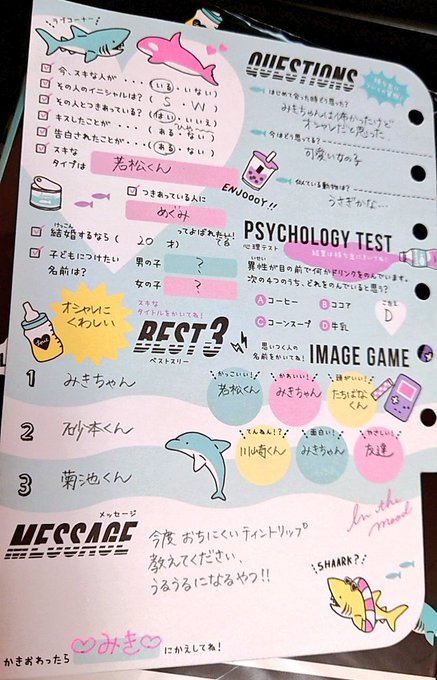 ラブコーナー
今、スキな人が・・・・(いる・いない)
その人のイニシャルは? ( S . W )
その人とつきあっている?(はい・いいえ)
ひや〜〜
キスしたことが・・・・(ある・ない)
告白されたことが・・・(ある・ない)
スキな
タイプは
若松くん
つきあっている人に
めぐみ
ってよばれたい!
てる
けっこん
結婚するなら( 20 才)
子どもにつけたい
名前は?
男の子 ?
女の子 ?
オシャレに
くわしい
スキな
タイトルをかいてね!
BEST3
ベストスリー
1 みきちゃん
2 砂本くん
3 菊池くん
QUESTIONS
はじめて会った時どう思った?
みきちゃんは怖かったけど
オシャレだと思った
今はどう思ってる?
可愛い女の子
似ている動物は?
うさぎかな…
ENJOOOY!!
PSYCHOLOGY TEST
心理テスト
いせい
異性が目の前で何かドリンクをのんでいます。
次の4つのうち、どれをのんでいると思う?
Aコーヒー Bココア
Cコーンスープ D牛乳
こたえ
D
思いつく人の
名前をかいてね!
IMAGE GAME
かっこいい!
若松くん
かわいい!
みきちゃん
頭がいい!
たちばな
くん
てんねん!?
川崎くん
面白い!
みきちゃん
やさしい!
友達
MESSAGE
メッセージ
今度 おちにくいティントリップ
教えてください、
うるうるになるやつ!!
In the
mood
SHAARK?
かきおわったら ♡みき♡ にかえしてね!